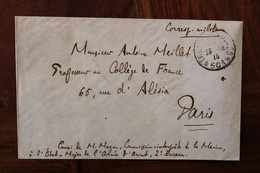 Corresp. militaire
Monsieur Antoine Meillet
Professeur au Collège de France
65, rue d'Alésia
Paris
Envoi de M. Mazon, Commissaire interprète de la Marine,
à l'État-Major de l'Armée d'Orient, 2e Bureau.